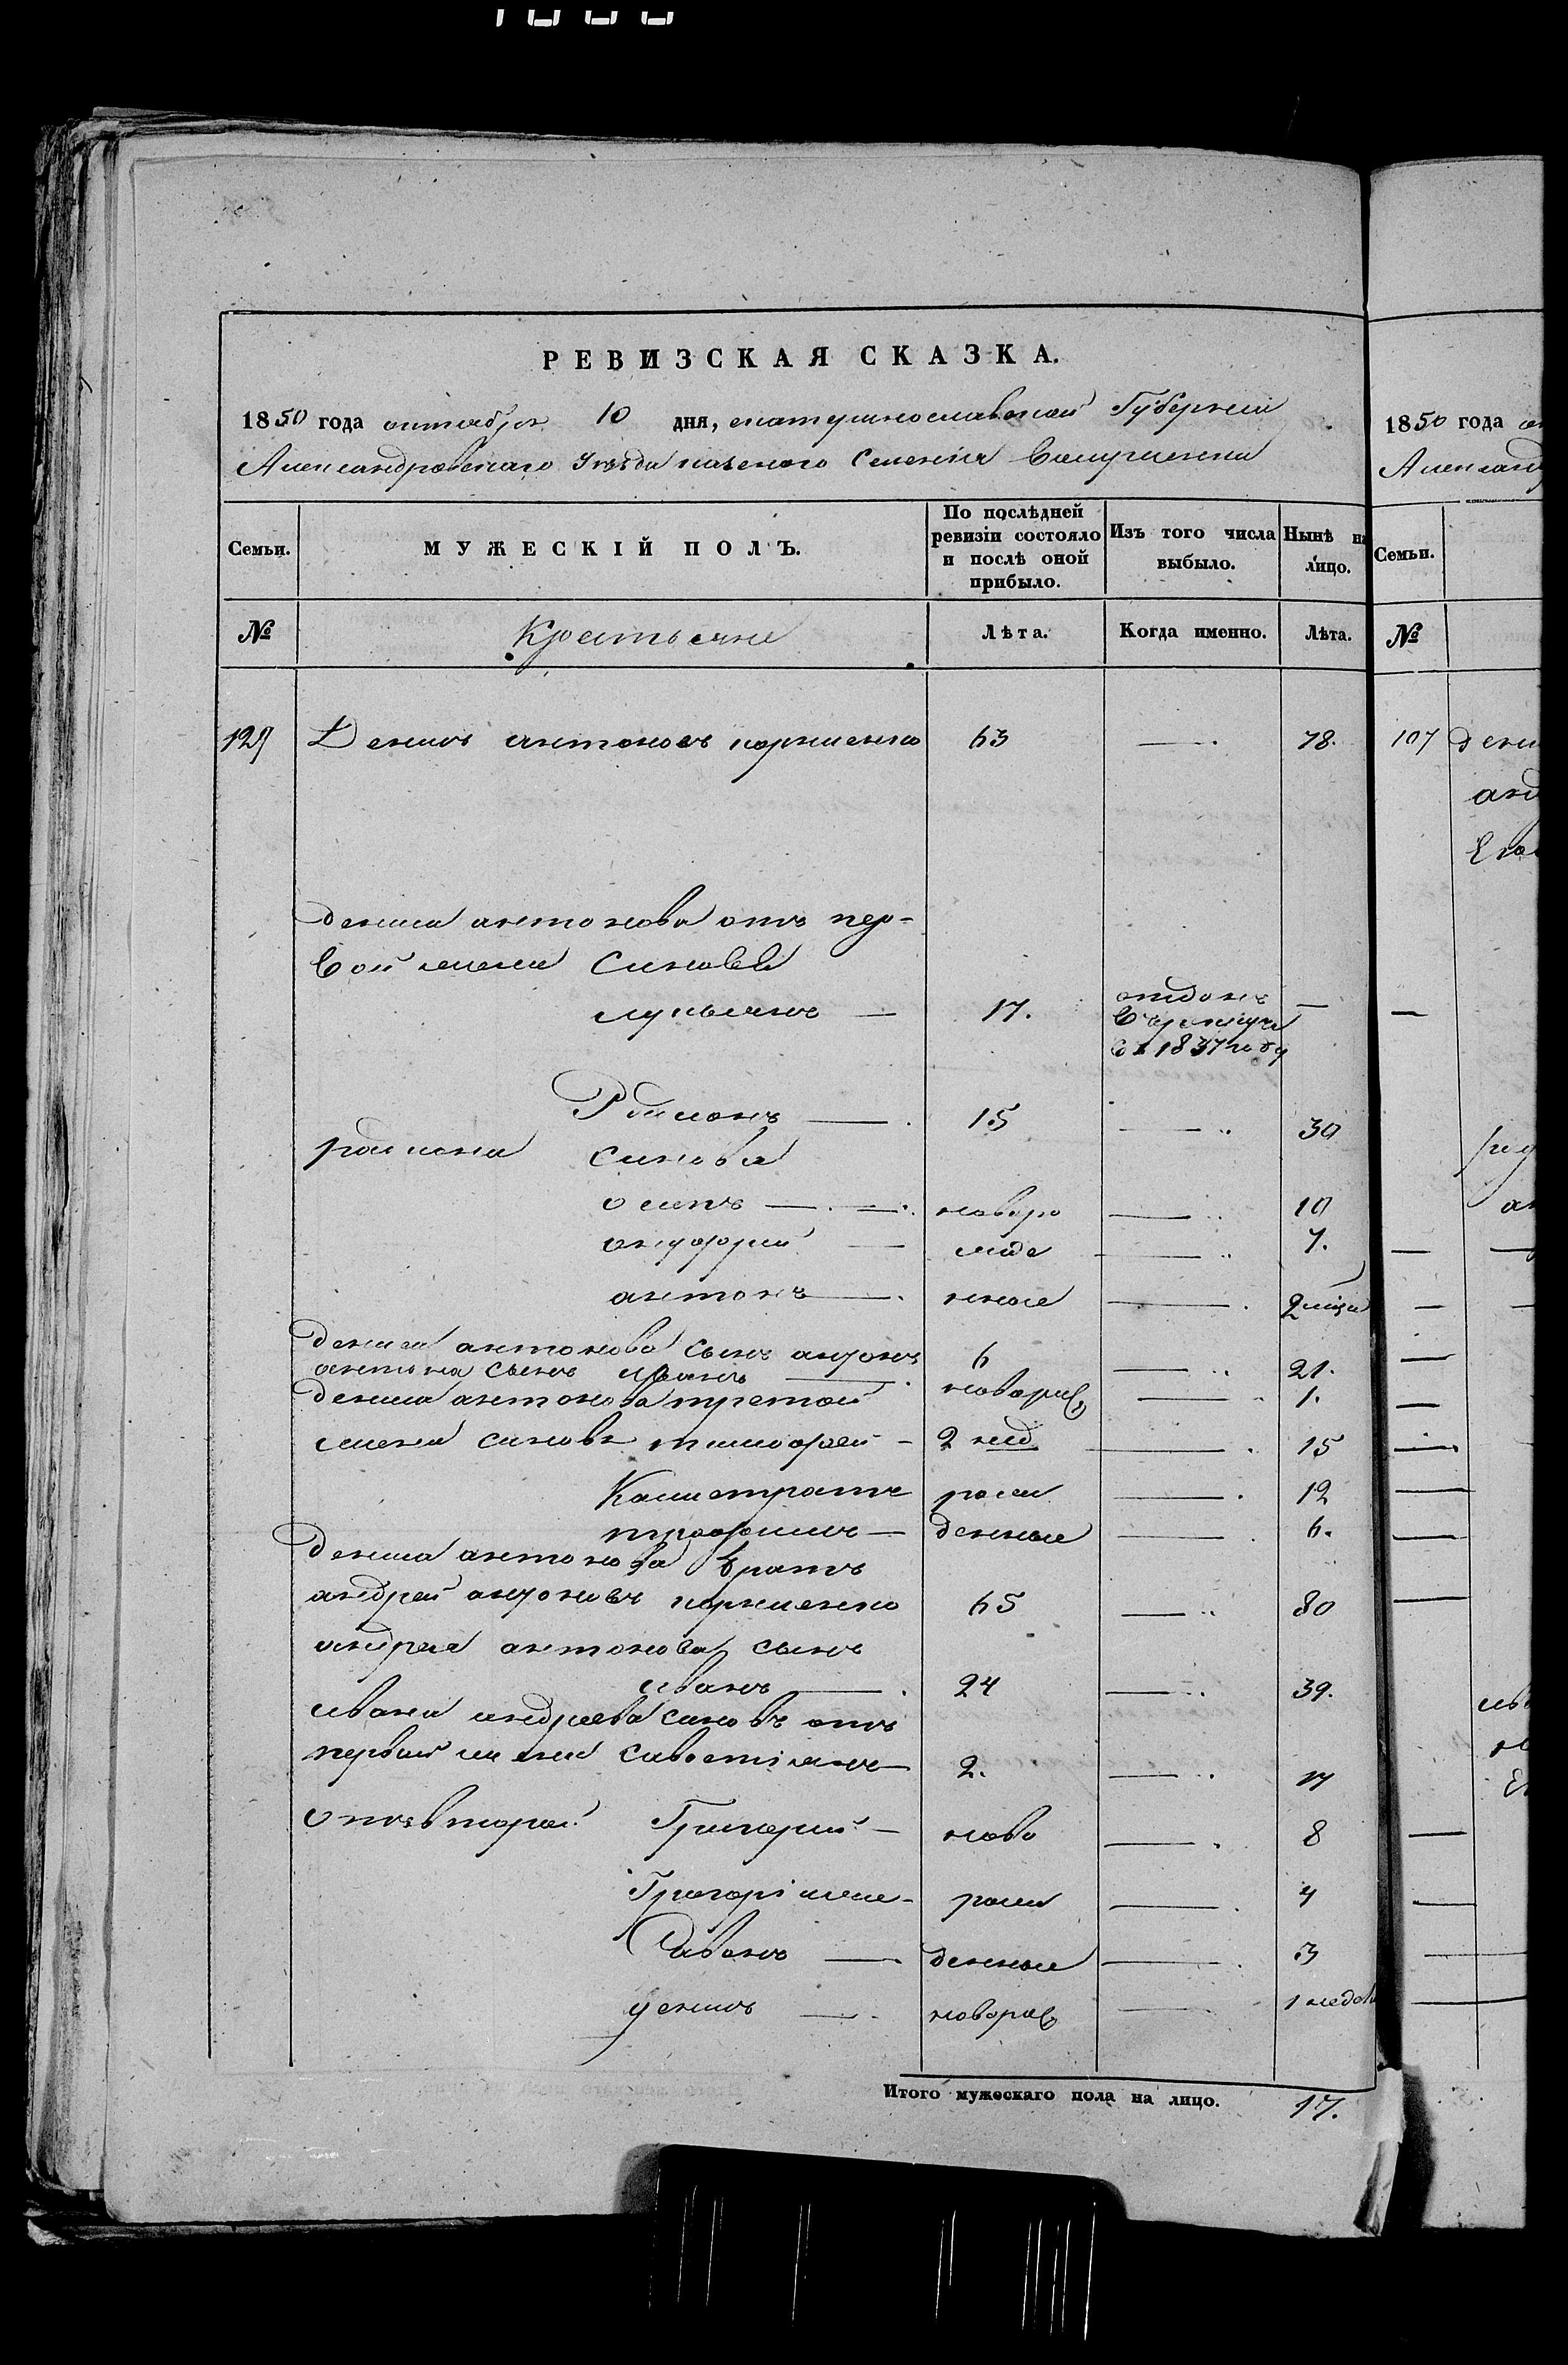 РЕВИЗСКАЯ СКАЗКА.
1850 года октября 10 дня, екатеринославской Губернии
Александровскаго Уезда казеного Селения
Семьи. МУЖЕСКІЙ ПОЛЪ. По послѣдней ревизіи состояло и послѣ оной прибыло. Изъ того числа выбыло. Нынѣ на лицо.
№ Крестьяне Лѣта. Когда именно. Лѣта.
Денисъ антоновъ 63 — 78.
дениса антонова отъ пер-
вой жены синовья
лукьянъ — 17. отданъ в рекруты въ 1837 году —
Романъ — 15 — 30
романа синовья
осипъ — новоро — 10
онуфрий — жде — 7.
антонъ — нные — 2 мца
дениса антонова сынъ антонъ 6 — 21.
антона сынъ иванъ — новорож — 1.
дениса антонова третой
жены синовья тимофей — 2 нед — 15
Калистратъ рож — 12
трофимъ — денные — 6.
дениса антонова братъ
андрей антоновъ 65 — 80
андрея антонова сынъ
иванъ — 24 — 39.
ивана андреева синовъ отъ
первой жены савостіянъ — 2. — 17
отъ второй Григорий — ново — 8
рож — 4
— денные — 3
денисъ — новорож — 1 недели
Итого мужескаго пола на лицо. 17.
1850 года
Семьи.
№
107